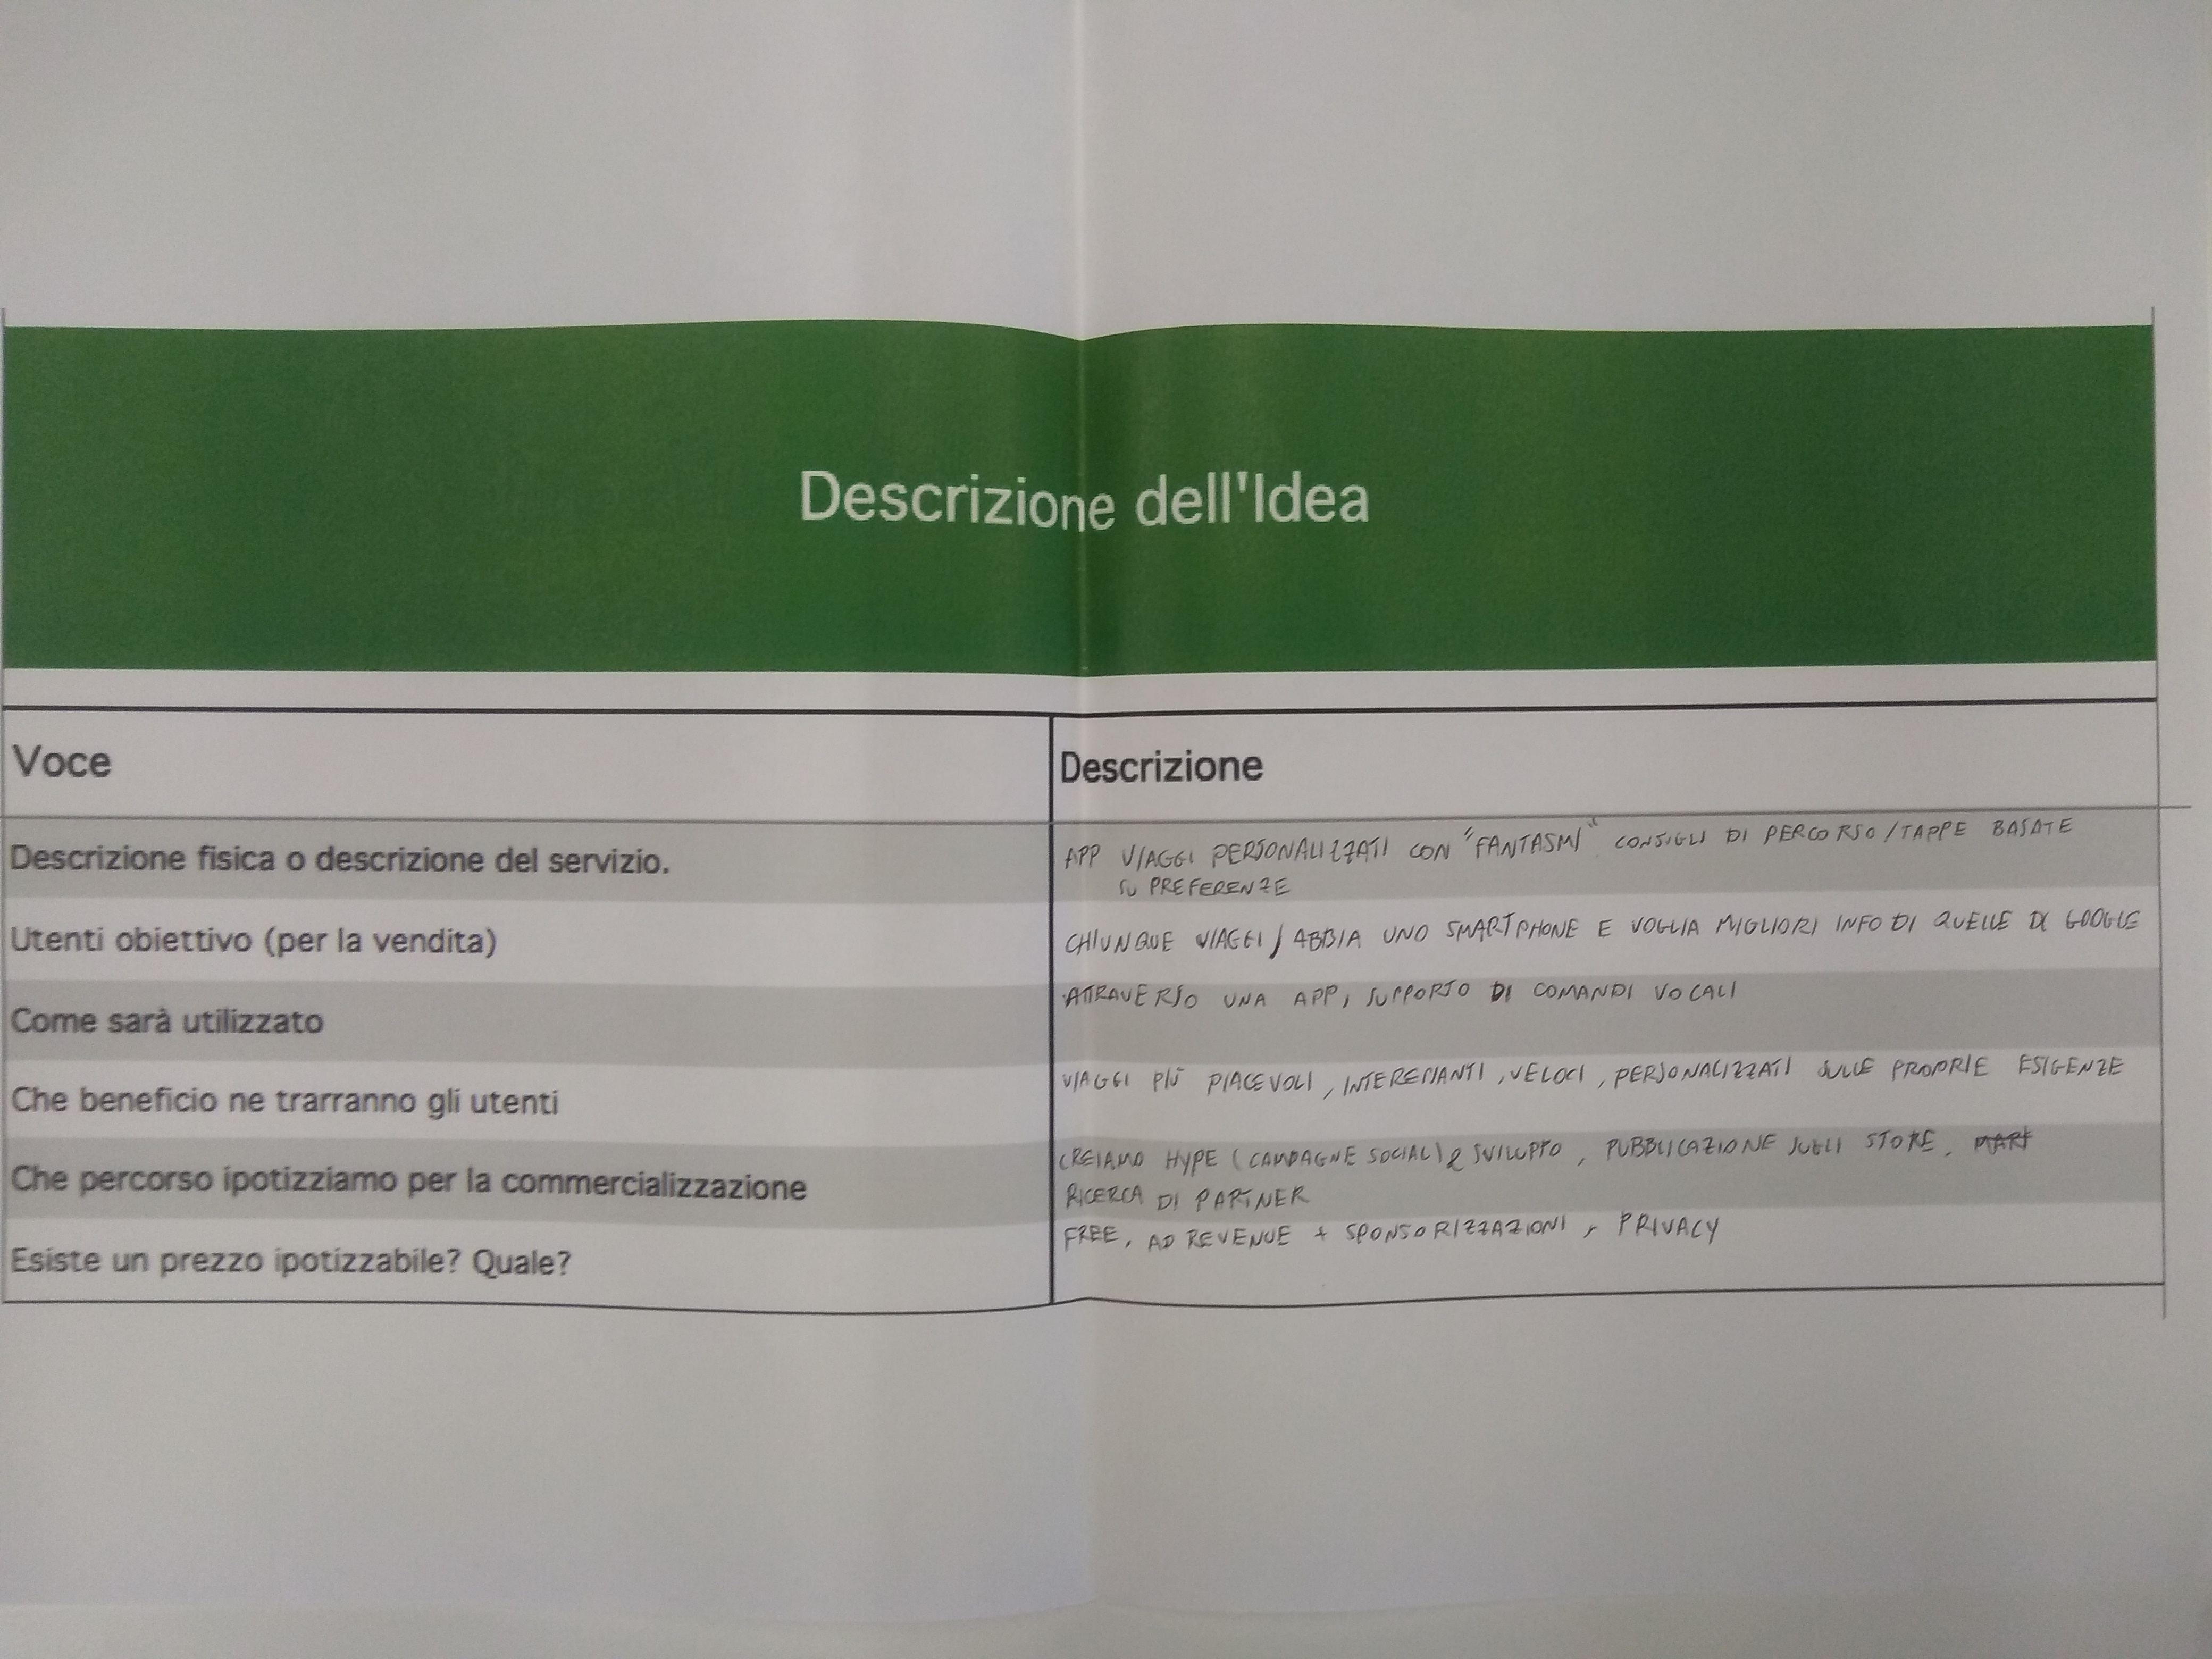 Descrizione dell'Idea
Voce
Descrizione
Descrizione fisica o descrizione del servizio.
APP VIAGGI PERSONALIZZATI CON "FANTASMI" CONSIGLI DI PERCORSO/TAPPE BASATE
SU PREFERENZE
Utenti obiettivo (per la vendita)
CHIUNQUE VIAGGI/ABBIA UNO SMARTPHONE E VOGLIA MIGLIORI INFO DI QUELLE DI GOOGLE
Come sarà utilizzato
ATTRAVERSO UNA APP, SUPPORTO DI COMANDI VOCALI
Che beneficio ne trarranno gli utenti
VIAGGI PIÙ PIACEVOLI, INTERESSANTI, VELOCI, PERSONALIZZATI SULLE PROPRIE ESIGENZE
Che percorso ipotizziamo per la commercializzazione
CREIAMO HYPE (CAMPAGNE SOCIAL) & SVILUPPO, PUBBLICAZIONE SUGLI STORE,
RICERCA DI PARTNER
Esiste un prezzo ipotizzabile? Quale?
FREE, AD REVENUE + SPONSORIZZAZIONI, PRIVACY